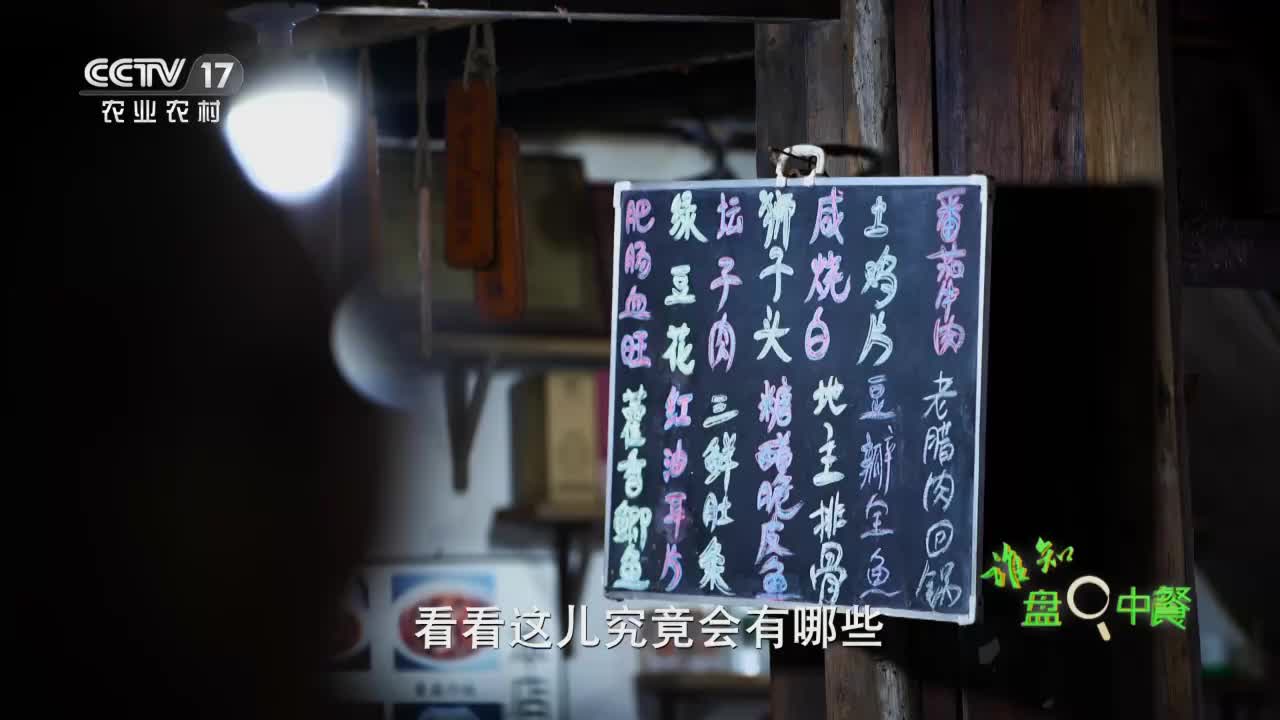 CCTV 17
农业农村
番茄牛肉 老腊肉回锅
土鸡片 豆瓣全鱼
咸烧白 地主排骨
狮子头 糖醋脆皮鱼
坛子肉 三鲜肚
绿豆花 红油耳片
肥肠血旺 藿香鲫鱼
谁知
盘中餐
看看这儿究竟会有哪些
店